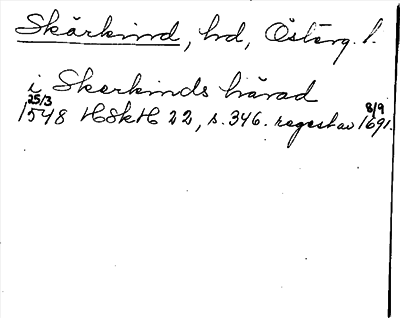 Skärkind, hd, Österg. l.
i Skerkinds härad
25/3 1548 HSkH 22, s. 346. regest av 8/9 1691.